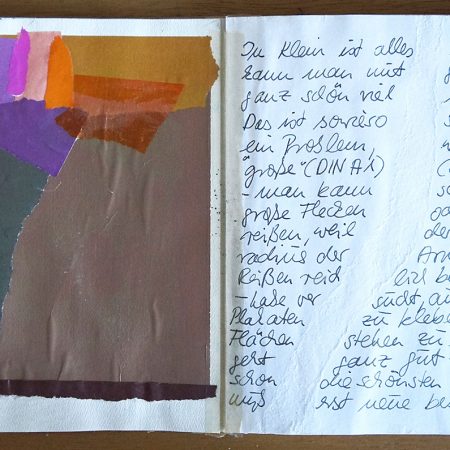 In klein ist alles
kann man mit
ganz schön viel
Das ist sowieso
ein Problem,
"große" (DIN A1)
- man kann
große Flecken
reißen, weil der
radius der Arm
Reißen reich lich be
- habe ver sucht, au
Plakaten zu klebe
Flächen stehen zu
geht ganz gut
schon die schönsten
muß erst neue be